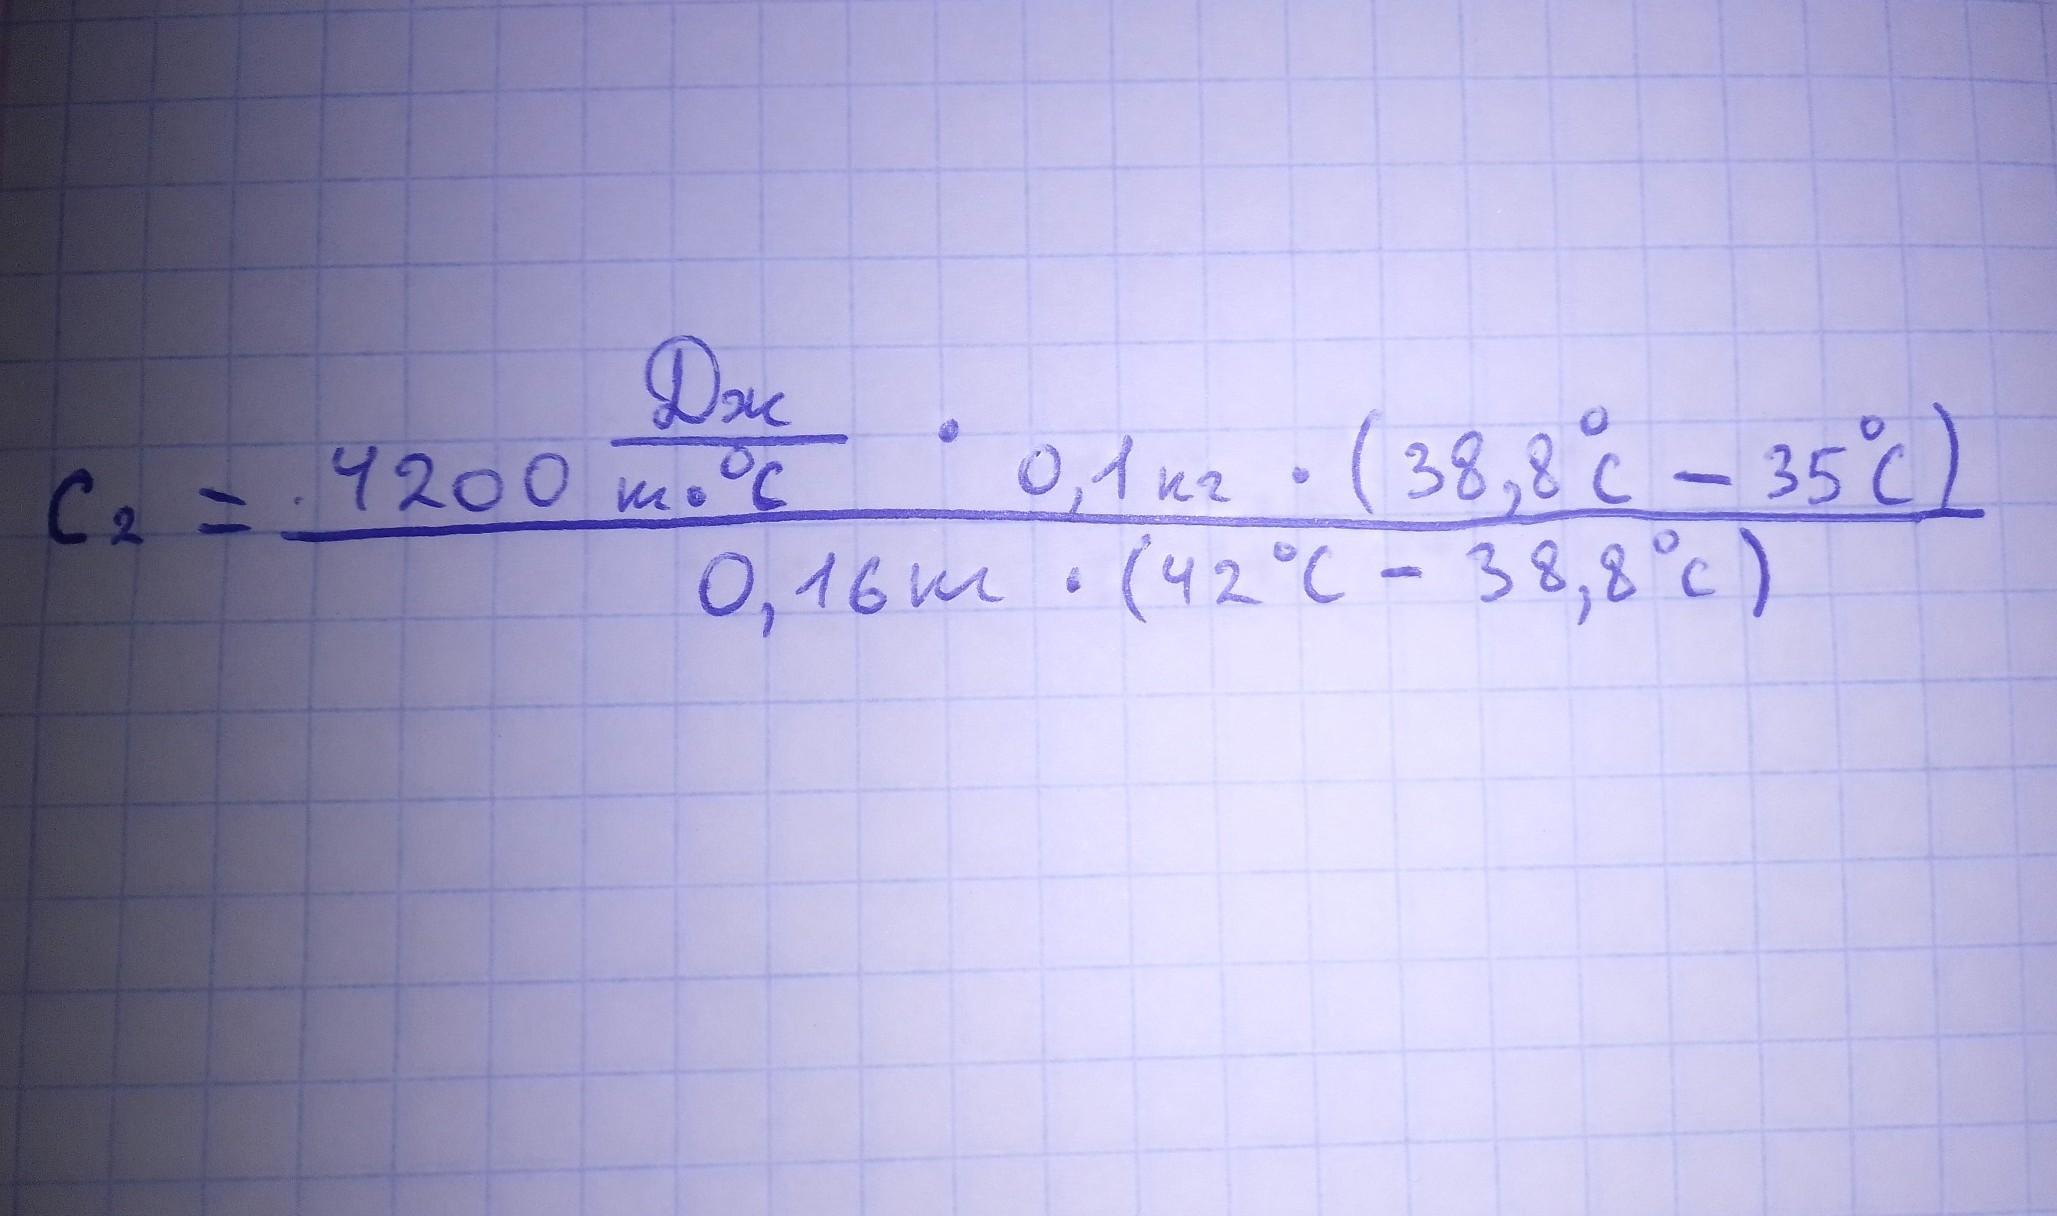 Дж
C₂ = 4200 кг·°C · 0,1кг · (38,8°C − 35°C)
0,16кг · (42°C − 38,8°C)